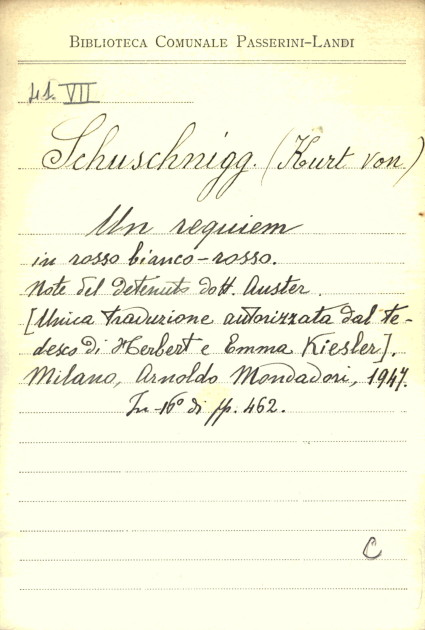 BIBLIOTECA COMUNALE PASSERINI-LANDI
VII
Schuschnigg. (Kurt von)
Un requiem
in rosso bianco-rosso.
Note del detenuto dott. Auster.
[Unica traduzione autorizzata dal te-
desco di Herbert e Emma Kiesler].
Milano, Arnoldo Mondadori, 1947.
In-16° di pp. 462.
C